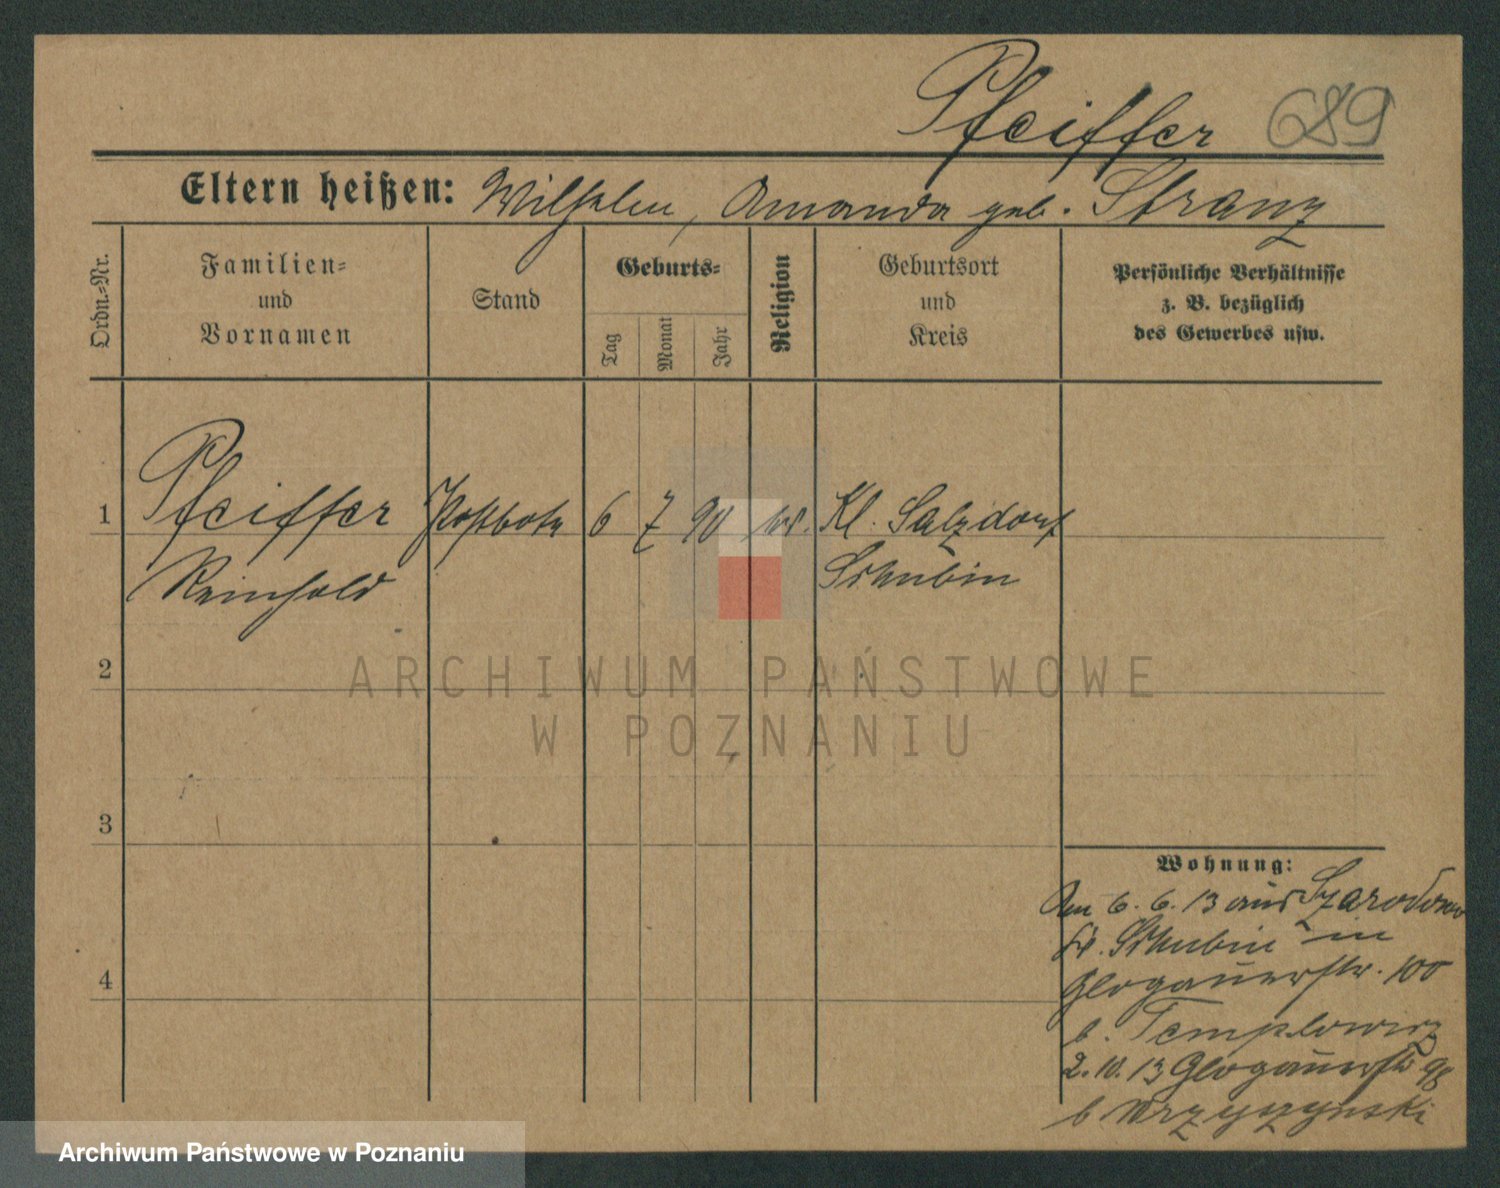 Pfeiffer 689
Eltern heißen: Wilhelm, Amanda geb. Stranz
Ordn.=Nr.
Familien=
und
Vornamen
Stand
Geburts=
Tag
Monat
Jahr
Religion
Geburtsort
und
Kreis
Persönliche Verhältnisse
z. B. bezüglich
des Gewerbes usw.
1 Pfeiffer Postbote 6 7 90 Kl. Salzdorf
Reinhold Schubin
2
3
4
Wohnung:
Am 6. 6. 13 aus Szarodowo
Kr. Schubin in
Glogauerstr. 100
b.
2. 10. 13 Glogauerstr 98
b Wrzyszynski
ARCHIWUM PAŃSTWOWE
W POZNANIU
Archiwum Państwowe w Poznaniu